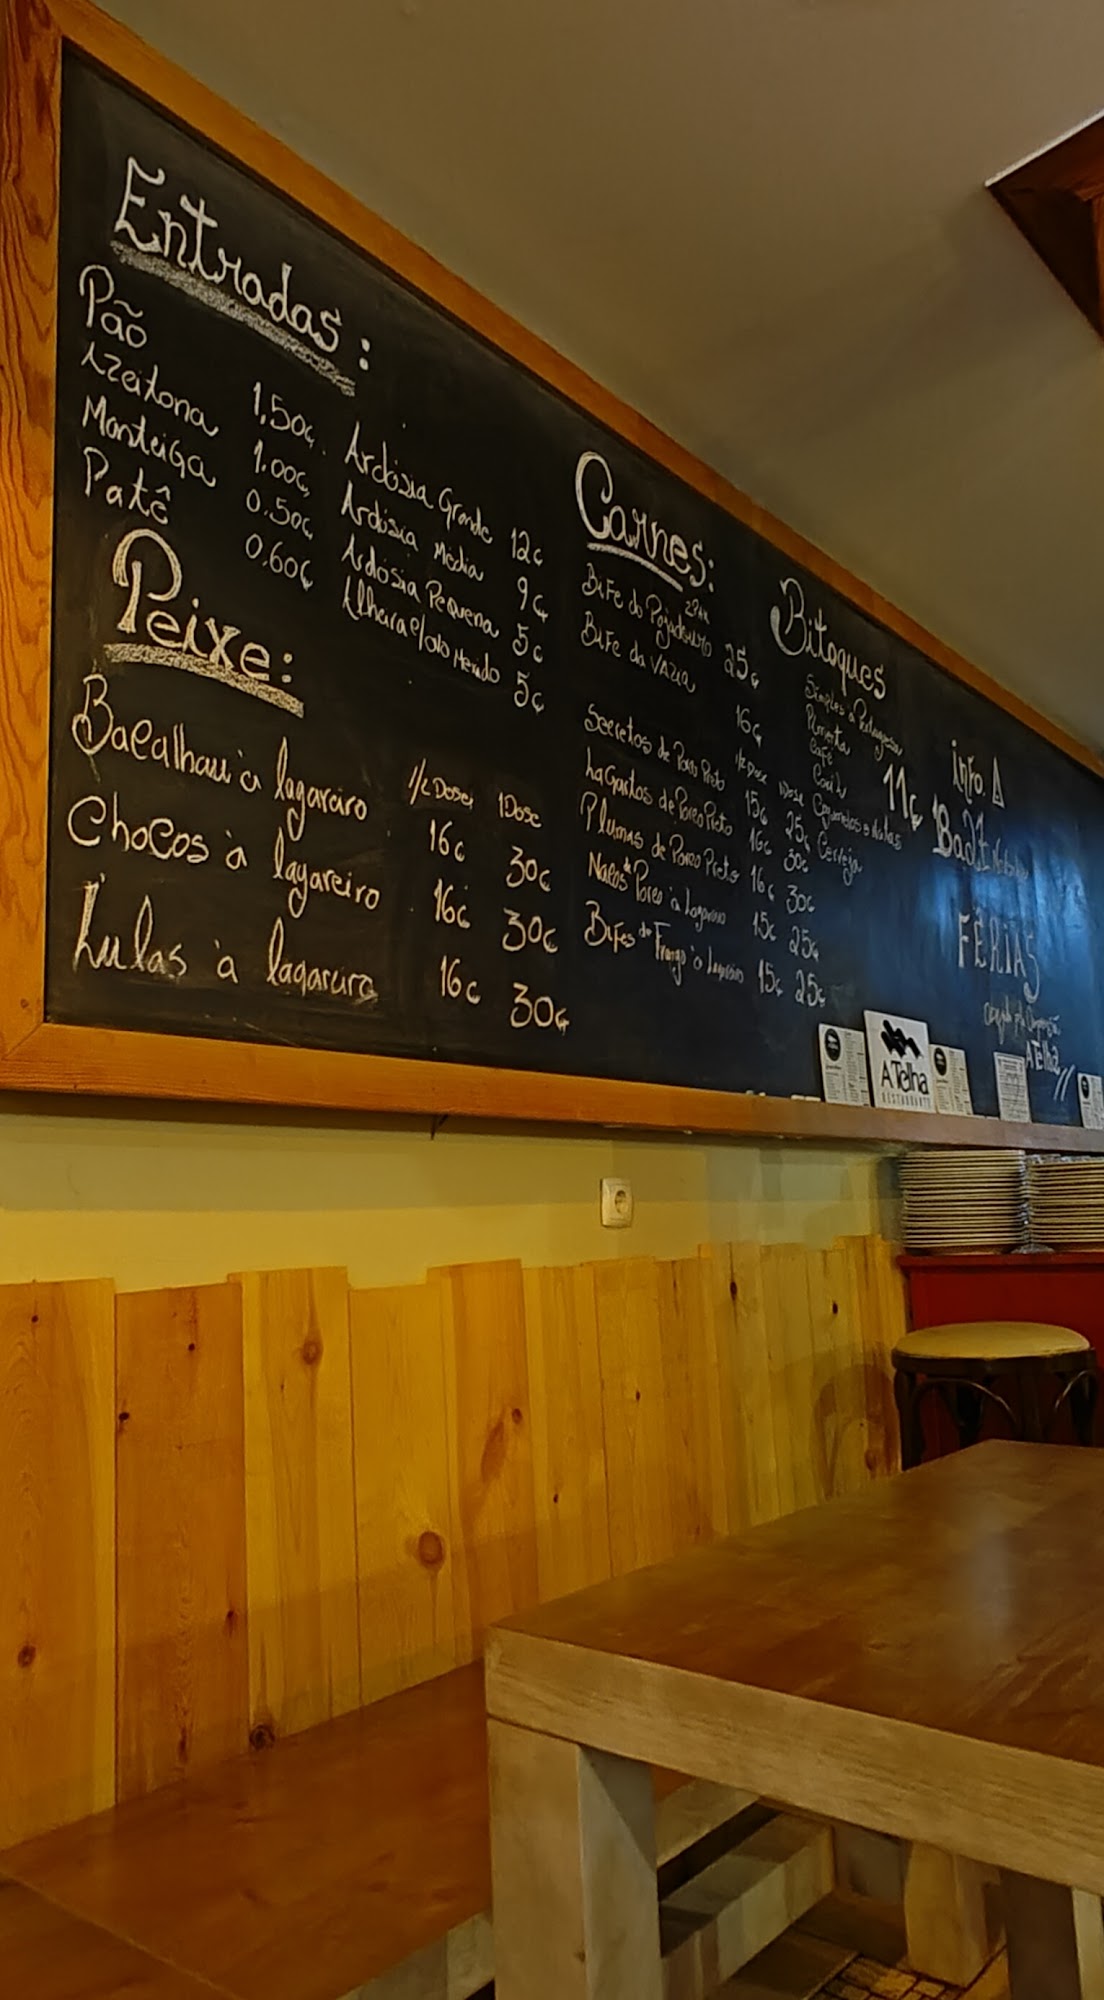 Entradas:
Pão 1,50€
Azeitona 1.00€
Manteiga 0.50€
Patê 0.60€
Ardósia Grande 12€
Ardósia Média 9€
Ardósia Pequena 5€
Alheira c/ ovo Mexido 5€
Peixe:
1/2 Dose 1 Dose
Bacalhau à lagareiro 16€ 30€
Chocos à lagareiro 16€ 30€
Lulas à lagareiro 16€ 30€
Carnes:
Bife do Pojadouro 25€
Bife da VAZIA 16€
1/2 Dose 1 Dose
Secretos de Porco Preto 15€ 25€
Lagartos de Porco Preto 16€ 30€
Plumas de Porco Preto 16€ 30€
Nacos de Porco à Lagareiro 15€ 25€
Bifes de Frango à Lagareiro 15€ 25€
Bitoques
Simples à Portuguesa
Pimenta
Café
Caril 11€
Cogumelos e Natas
Cerveja
info.
FÉRIAS
A Telha
A Telha
RESTAURANTE